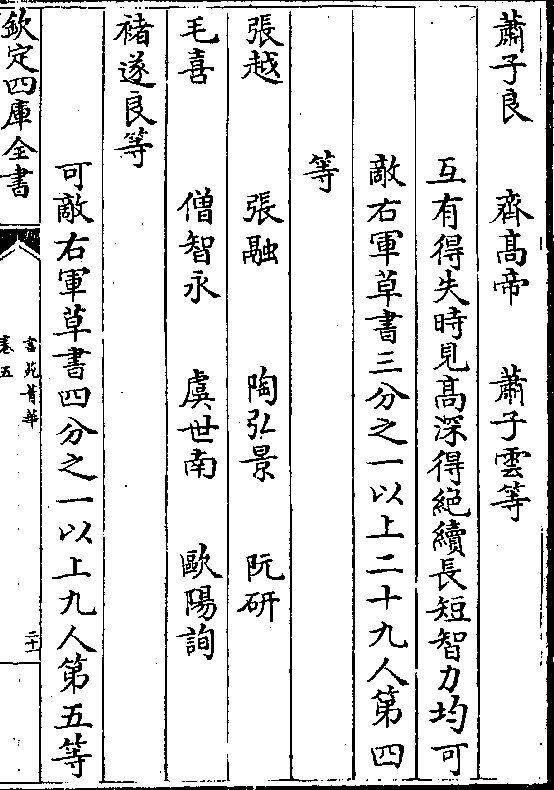 蕭子良 齊髙帝 蕭子雲等
互有得失時見髙深得絕續長短智力均可
敵右軍草書三分之一以上二十九人第四
等
張越 張融 陶弘景 阮研
毛喜 僧智永 虞世南 歐陽詢
褚遂良等
可敵右軍草書四分之一以上九人第五等
欽定四庫全書
書苑菁華
卷五
二十